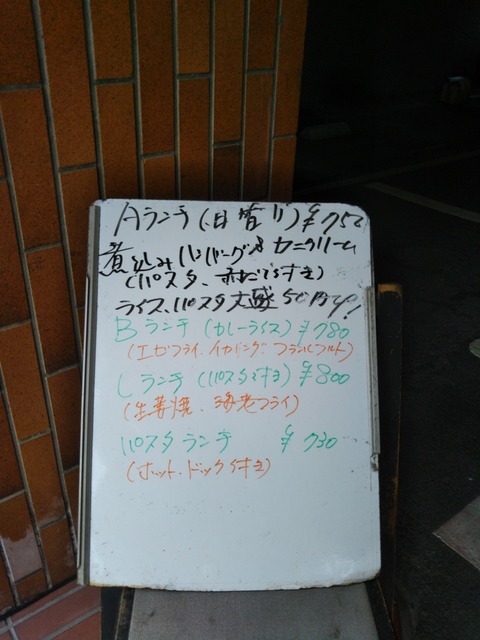 Aランチ(日替り)¥750
煮込みハンバーグ&カニクリーム
(パスタ、赤だし付き)
ライス、パスタ大盛50円up!
Bランチ(カレーライス)¥780
(エビフライ、イカリング、フランクフルト)
Cランチ(パスタ付き)¥800
(生姜焼、海老フライ)
パスタランチ ¥730
(ホットドック付き)